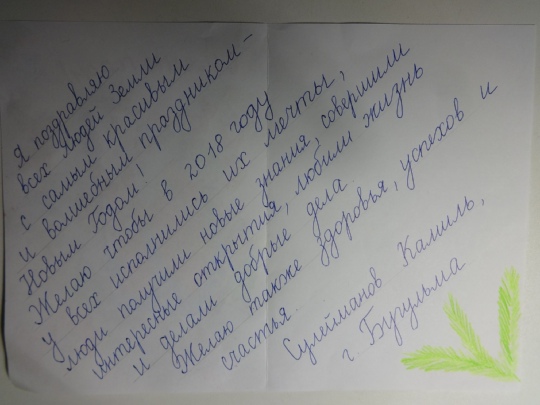 Я поздравляю
всех людей Земли
с самым красивым
и волшебным праздником –
Новым Годом!
Желаю чтобы в 2018 году
у всех исполнились их мечты,
люди получили новые знания, совершили
интересные открытия, любили жизнь
и делали добрые дела.
Желаю также здоровья, успехов и
счастья.
Сулейманов Камиль,
г. Бугульма